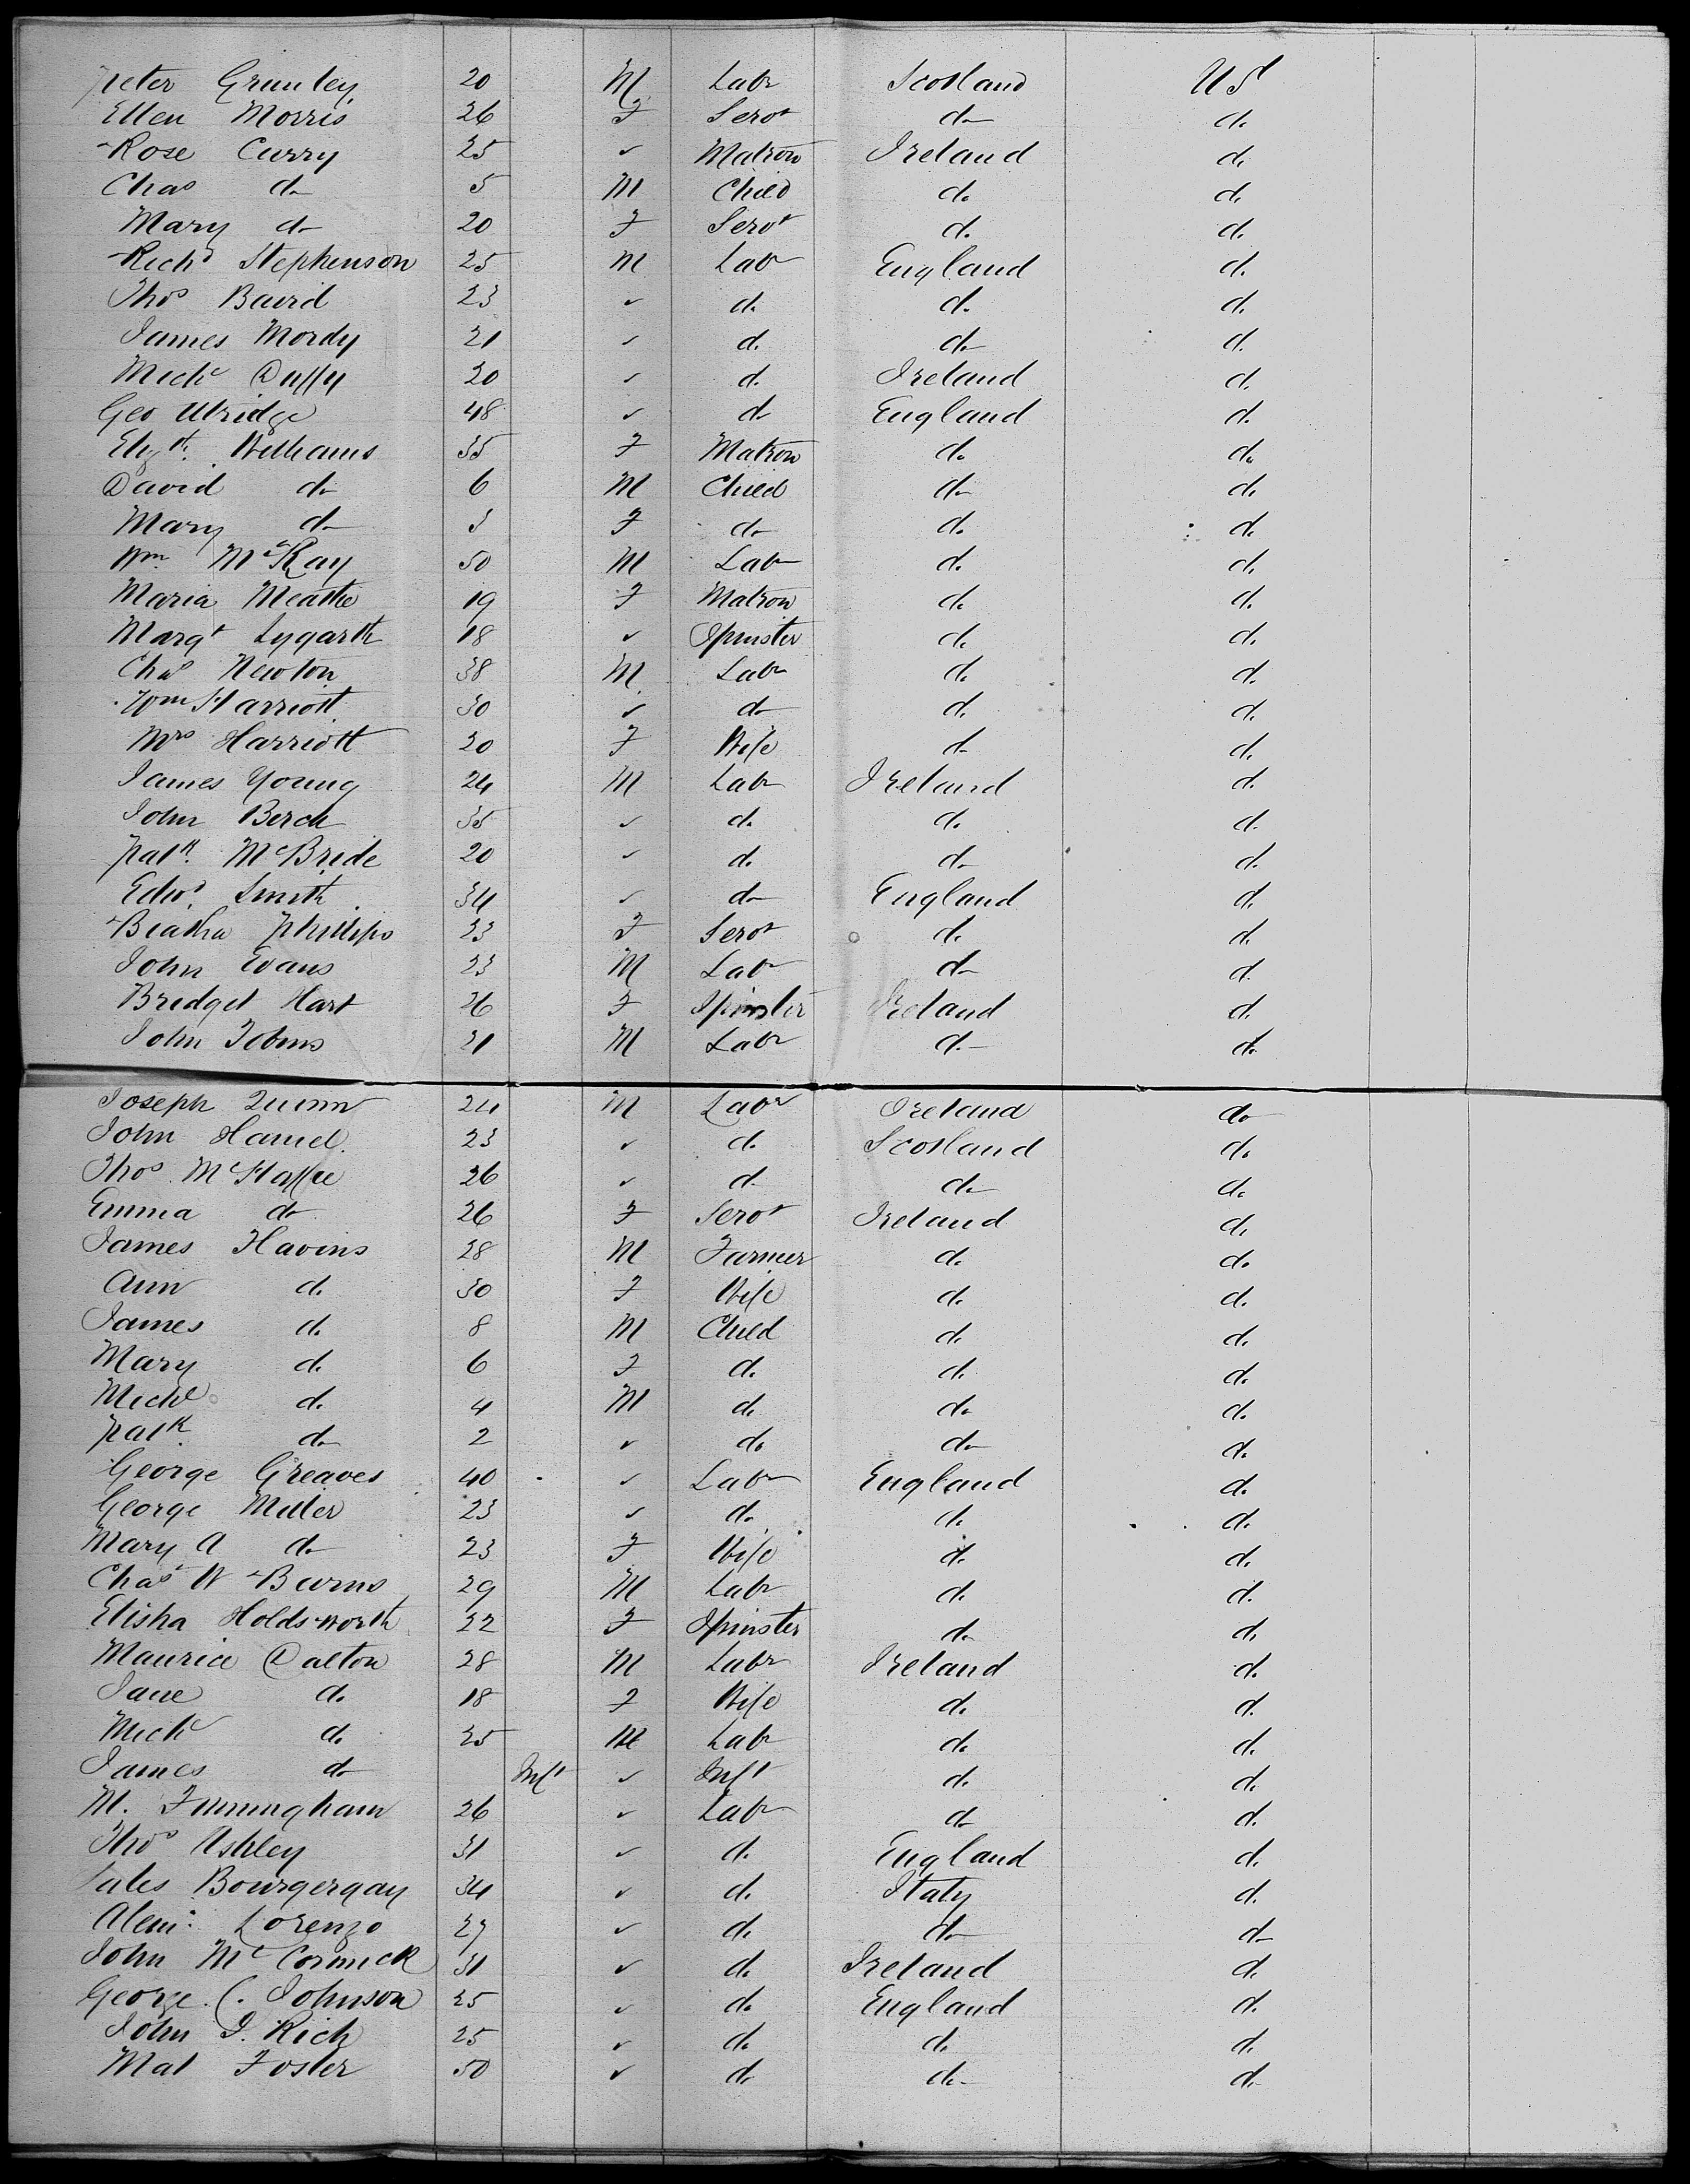 Peter Grunley 20 M Labr Scotland US
Ellen Morris 26 F Servt do do
Rose Curry 25 ✓ Matron Ireland do
Chas do 5 M Child do do
Mary do 20 F Servt do do
Richd Stephenson 25 M Labr England do
Thos Baird 23 ✓ do do do
James Mordy 21 ✓ do do do
Michl Duffy 20 ✓ do Ireland do
Geo Utridge 48 ✓ do England do
Elizth Williams 35 F Matron do do
David do 6 M Child do do
Mary do 3 F do do do
Wm McKay 50 M Labr do do
Maria Meathe 19 F Matron do do
Margt Lygarth 18 ✓ Spinster do do
Chas Newton 38 M Labr do do
Wm Harriott 30 ✓ do do do
Mrs Harriott 20 F Wife do do
James Young 24 M Labr Ireland do
John Berch 35 ✓ do do do
Patk McBride 20 ✓ do do do
Edwd Smith 34 ✓ do England do
Beatha Phillips 23 F Servt do do
John Evans 23 M Labr do do
Bridget Hart 26 F Spinster Ireland do
John Tobins 21 M Labr do do
Joseph Quinn 24 M Labr Ireland do
John Hamel 23 ✓ do Scotland do
Thos McHaffie 26 ✓ do do do
Emma do 26 F Servt Ireland do
James Havins 28 M Farmer do do
Ann do 30 F Wife do do
James do 8 M Child do do
Mary do 6 F do do do
Michl do 4 M do do do
Patk do 2 ✓ do do do
George Greaves 40 ✓ Labr England do
George Miller 23 ✓ do do do
Mary A do 23 F Wife do do
Chas W Burns 29 M Labr do do
Elisha Holdsworth 22 F Spinster do do
Maurice Dalton 28 M Labr Ireland do
Jane do 18 F Wife do do
Michl do 25 M Labr do do
James do Inft ✓ Inft do do
M. Finningham 26 ✓ Labr do do
Thos Ashley 31 ✓ do England do
Jules Bourgergay 34 ✓ do Italy do
Lorenzo 27 ✓ do do do
John McCormick 31 ✓ do Ireland do
George C. Johnson 25 ✓ do England do
John J. Rich 25 ✓ do do do
Mat Foster 50 ✓ do do do